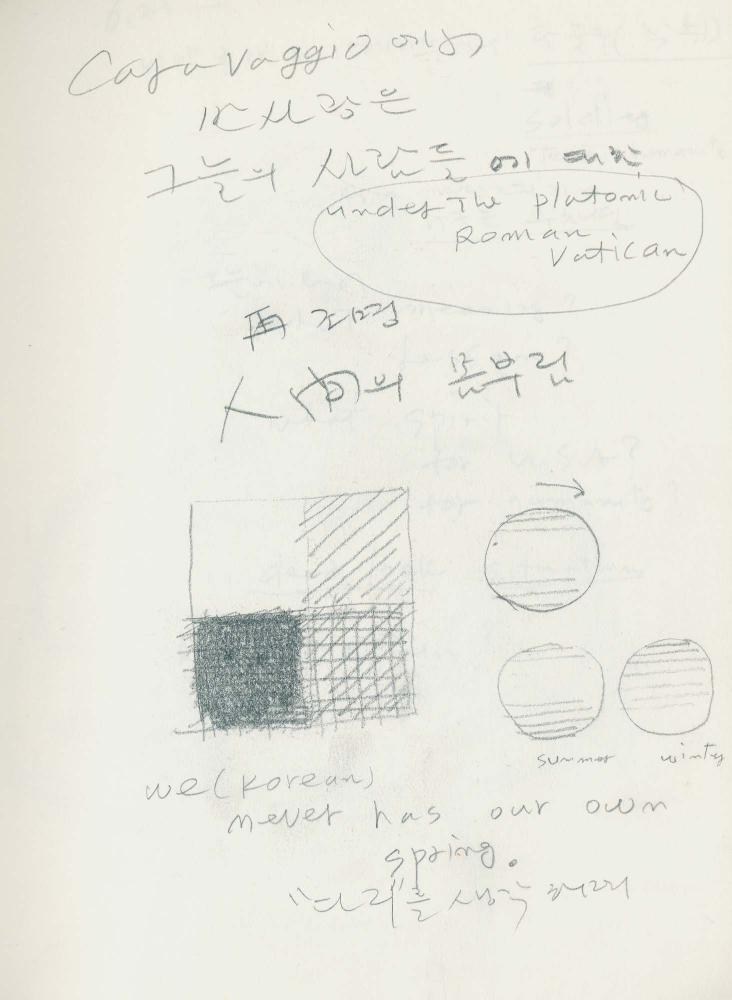 Caravaggio 에서
사랑은
그늘의 사람들에 대한
under The platonic
Roman
Vatican
再 조명
人間의 몸부림
summer winter
we (Korean)
never has our own
spring.
를 생각